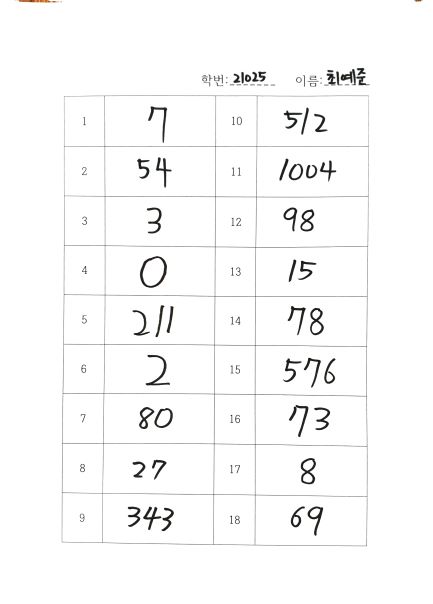 학번: 21025 이름: 최예준
1 7 10 512
2 54 11 1004
3 3 12 98
4 0 13 15
5 211 14 78
6 2 15 576
7 80 16 73
8 27 17 8
9 343 18 69